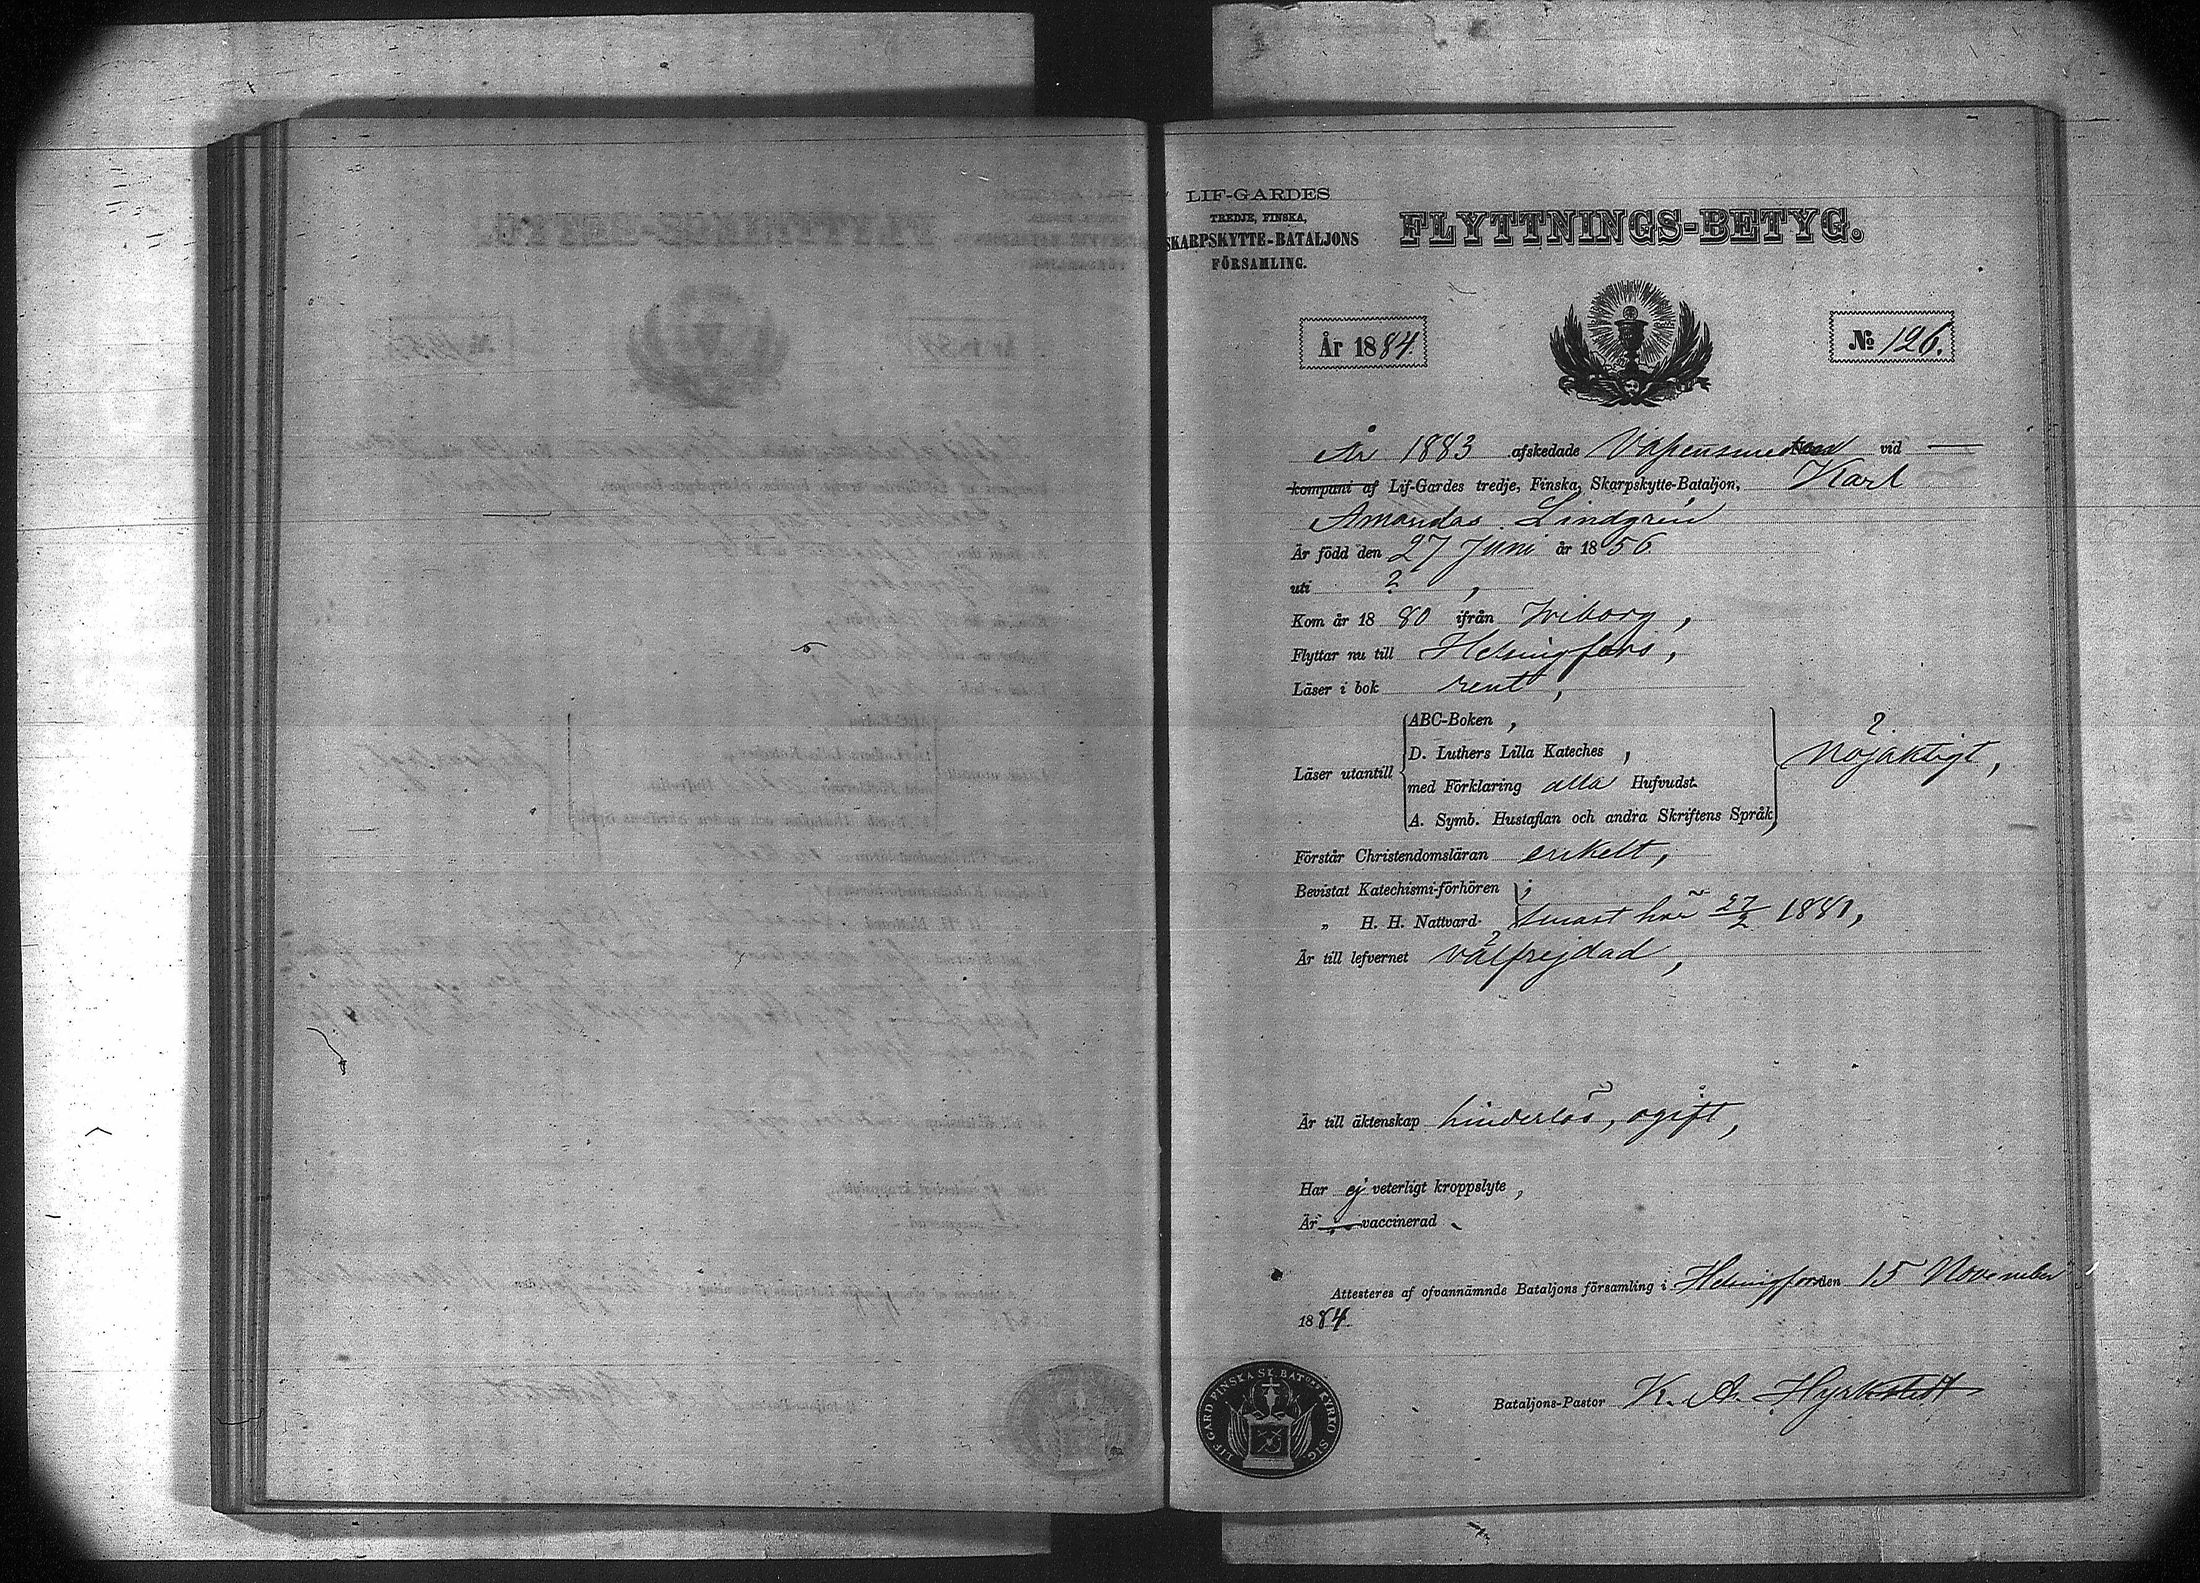 LIF-GARDES
TREDJE, FINSKA,
SKARPSKYTTE-BATALJONS
FÖRSAMLING.
FLYTTNINGS-BETYG.
År 1884.
№ 126.
År 1883 afskedade Vapensmeden vid
kompani af Lif-Gardes tredje, Finska, Skarpskytte-Bataljon, Karl
Amandus Lindgrén
Är född den 27 Juni år 1856
uti ? ,
Kom år 1880 ifrån Wiborg,
Flyttar nu till Helsingfors,
Läser i bok rent,
Läser utantill
ABC-Boken,
D. Luthers Lilla Kateches,
med Förklaring alla Hufvudst.
A. Symb. Hustaflan och andra Skriftens Språk
nöjaktigt,
Förstår Christendomsläran enkelt,
Bevistat Katechismi-förhören
„ H. H. Nattvard senast här 27/2 1881,
Är till lefvernet välfrejdad,
Är till äktenskap hinderlös, ogift,
Har ej veterligt kroppslyte,
Är vaccinerad.
Attesteres af ofvannämnde Bataljons församling i Helsingfors den 15 November
1884.
Bataljons-Pastor K. A. Hyrkstedt
LIF GARD FINSKA SK. BAT:ONS KYRKO SIG.